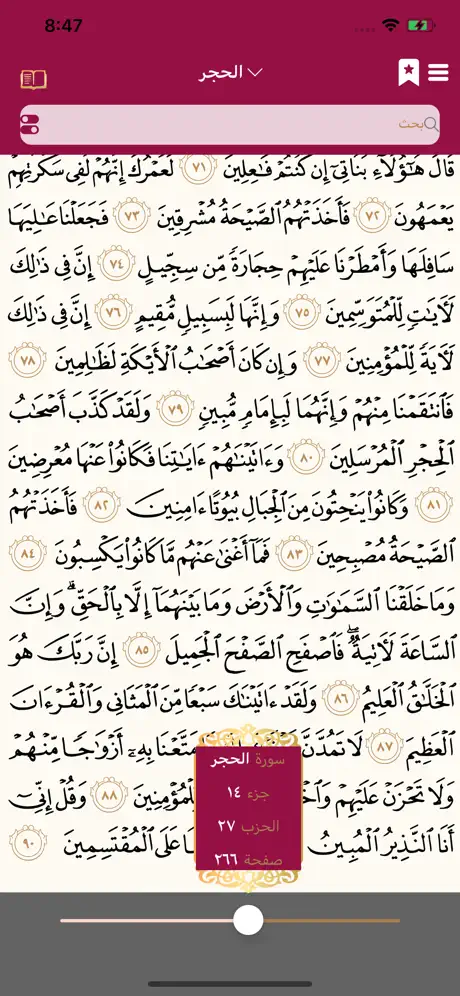 8:47
الحجر
بحث
قَالَ هَٰٓؤُلَآءِ بَنَاتِىٓ إِن كُنتُمْ فَٰعِلِينَ ٧١ لَعَمْرُكَ إِنَّهُمْ لَفِى سَكْرَتِهِمْ
يَعْمَهُونَ ٧٢ فَأَخَذَتْهُمُ ٱلصَّيْحَةُ مُشْرِقِينَ ٧٣ فَجَعَلْنَا عَٰلِيَهَا
سَافِلَهَا وَأَمْطَرْنَا عَلَيْهِمْ حِجَارَةً مِّن سِجِّيلٍ ٧٤ إِنَّ فِى ذَٰلِكَ
لَءَايَٰتٍ لِّلْمُتَوَسِّمِينَ ٧٥ وَإِنَّهَا لَبِسَبِيلٍ مُّقِيمٍ ٧٦ إِنَّ فِى ذَٰلِكَ
لَءَايَةً لِّلْمُؤْمِنِينَ ٧٧ وَإِن كَانَ أَصْحَٰبُ ٱلْأَيْكَةِ لَظَٰلِمِينَ ٧٨
فَٱنتَقَمْنَا مِنْهُمْ وَإِنَّهُمَا لَبِإِمَامٍ مُّبِينٍ ٧٩ وَلَقَدْ كَذَّبَ أَصْحَٰبُ
ٱلْحِجْرِ ٱلْمُرْسَلِينَ ٨٠ وَءَاتَيْنَٰهُمْ ءَايَٰتِنَا فَكَانُوا۟ عَنْهَا مُعْرِضِينَ
٨١ وَكَانُوا۟ يَنْحِتُونَ مِنَ ٱلْجِبَالِ بُيُوتًا ءَامِنِينَ ٨٢ فَأَخَذَتْهُمُ
ٱلصَّيْحَةُ مُصْبِحِينَ ٨٣ فَمَآ أَغْنَىٰ عَنْهُم مَّا كَانُوا۟ يَكْسِبُونَ ٨٤
وَمَا خَلَقْنَا ٱلسَّمَٰوَٰتِ وَٱلْأَرْضَ وَمَا بَيْنَهُمَآ إِلَّا بِٱلْحَقِّ ۗ وَإِنَّ
ٱلسَّاعَةَ لَءَاتِيَةٌ ۖ فَٱصْفَحِ ٱلصَّفْحَ ٱلْجَمِيلَ ٨٥ إِنَّ رَبَّكَ هُوَ
ٱلْخَلَّٰقُ ٱلْعَلِيمُ ٨٦ وَلَقَدْ ءَاتَيْنَٰكَ سَبْعًا مِّنَ ٱلْمَثَانِى وَٱلْقُرْءَانَ
ٱلْعَظِيمَ ٨٧ لَا تَمُدَّنَّ مَتَّعْنَا بِهِۦٓ أَزْوَٰجًا مِّنْهُمْ
وَلَا تَحْزَنْ عَلَيْهِمْ لِلْمُؤْمِنِينَ ٨٨ وَقُلْ إِنِّىٓ
أَنَا ٱلنَّذِيرُ ٱلْمُبِينُ عَلَى ٱلْمُقْتَسِمِينَ ٩٠
سورة الحجر
جزء ١٤
الحزب ٢٧
صفحة ٢٦٦